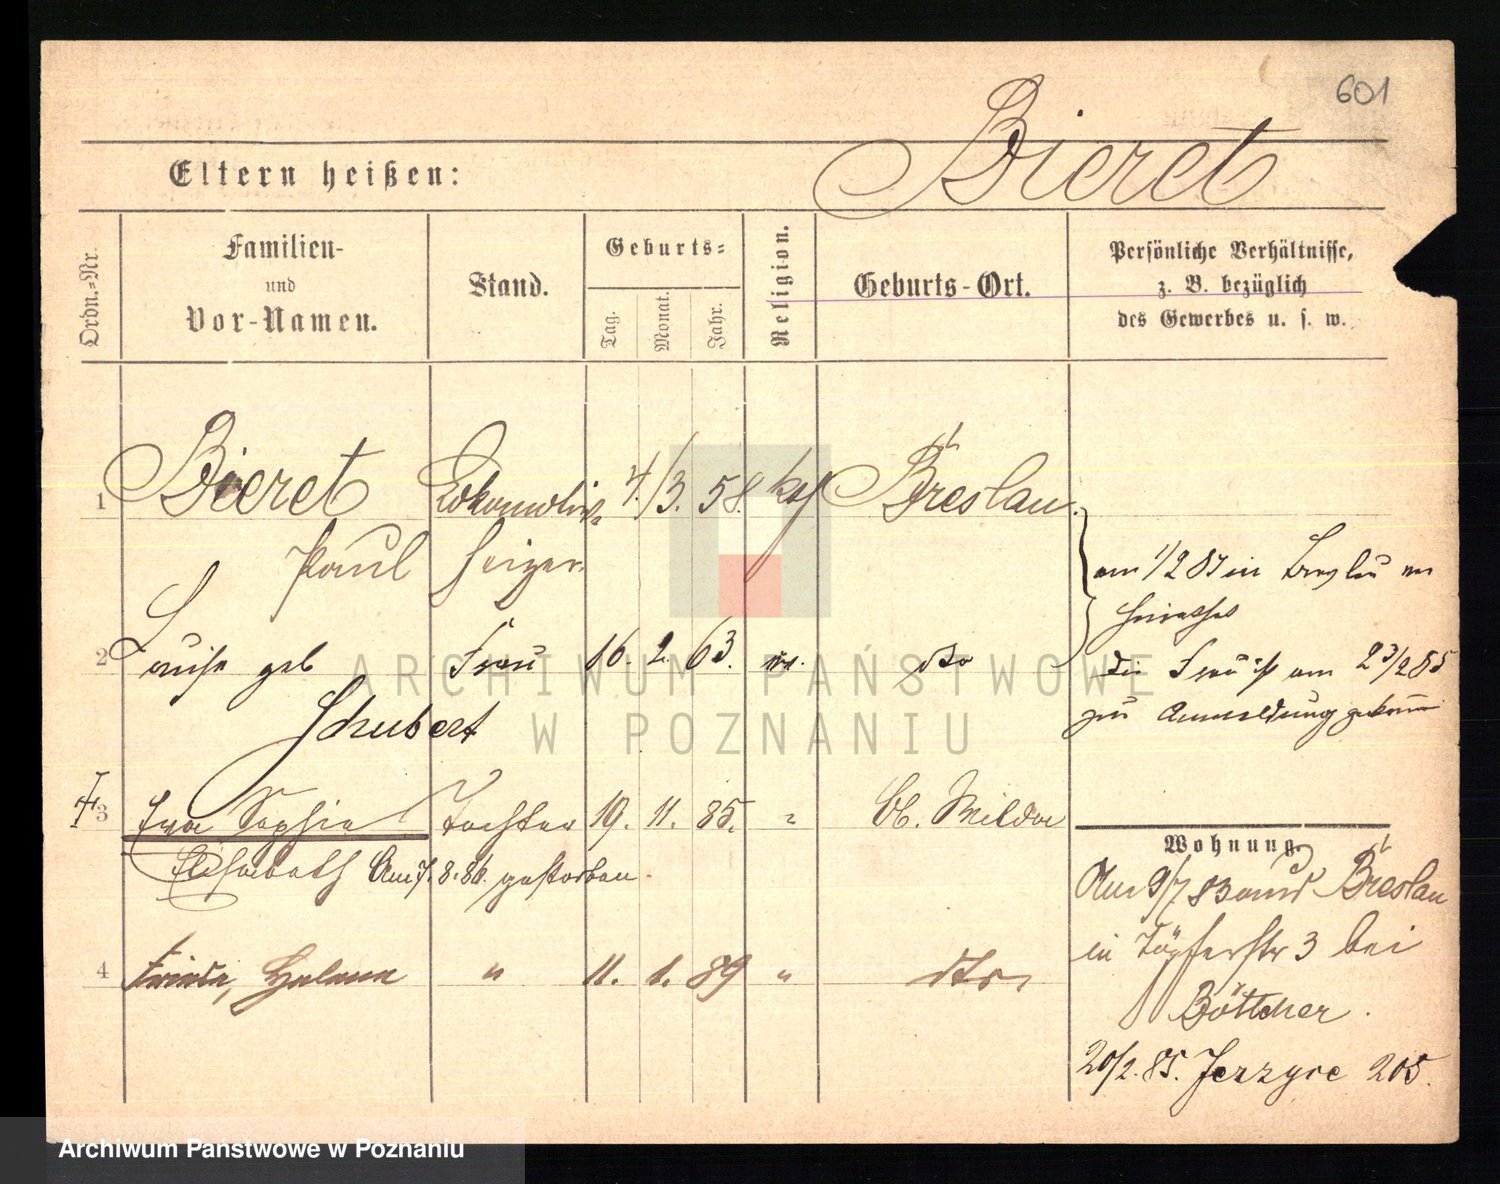 601
Bieret
Eltern heißen:
Ordn.-Nr.
Familien-
und
Vor-Namen.
Stand.
Geburts-
Tag.
Monat.
Jahr.
Religion.
Geburts-Ort.
Persönliche Verhältnisse,
z. B. bezüglich
des Gewerbes u. s. w.
1 Bieret Lokomotiv- 4. 3. 58. kath Breslau.
Paul Heizer.
am 1/2 85 in Breslau ver
heirathet
2 Luise geb Frau 16. 2. 63. dto
Schubert
die Frau ist am 23/2 85
zur Anmeldung gekommen
3 Eva Sophie Tochter 19. 11. 85. " Wilda
Elisabeth Am 7. 8. 86. gestorben.
4 Frieda, Helene " 11. 1. 89 " dto.
Wohnung.
Am 9/7 83 aus Breslau
in Töpferstr 3 bei
Böttcher.
20/2. 85. Jerzyce 205.
ARCHIWUM PAŃSTWOWE
W POZNANIU
Archiwum Państwowe w Poznaniu